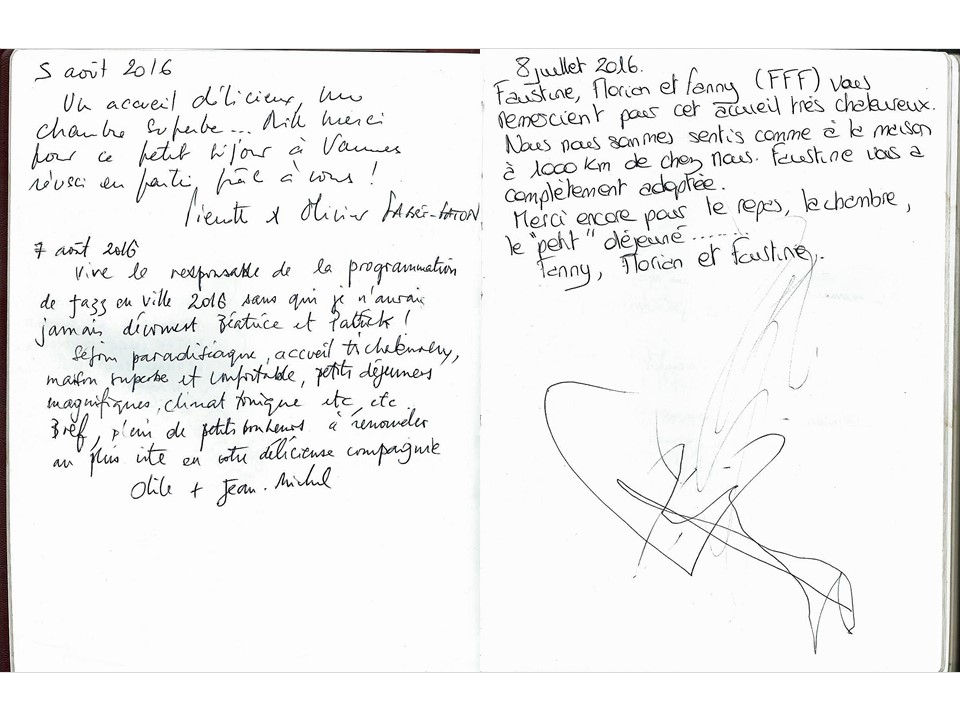 5 août 2016
Un accueil délicieux, une
chambre superbe... Mille merci
pour ce petit bijou à Vannes
réussi en partie grâce à vous !
& Olivier
7 août 2016
Vive le responsable de la programmation
de Jazz en ville 2016 sans qui je n'aurais
jamais découvert Béatrice et Patrick !
Séjour paradisiaque, accueil
maison superbe et confortable, petits déjeuners
magnifiques, climat tonique etc, etc
Bref, plein de petits bonheurs à renouveler
au plus vite en votre délicieuse compagnie
Odile + Jean-Michel
8 juillet 2016.
Faustine, Florian et Fanny (FFF) vous
remercient pour cet accueil très chaleureux.
Nous nous sommes sentis comme à la maison
à 1000 km de chez nous. Faustine vous a
complètement adoptée.
Merci encore pour le repas, la chambre,
le "petit" déjeuné........
Fanny, Florian et Faustine.